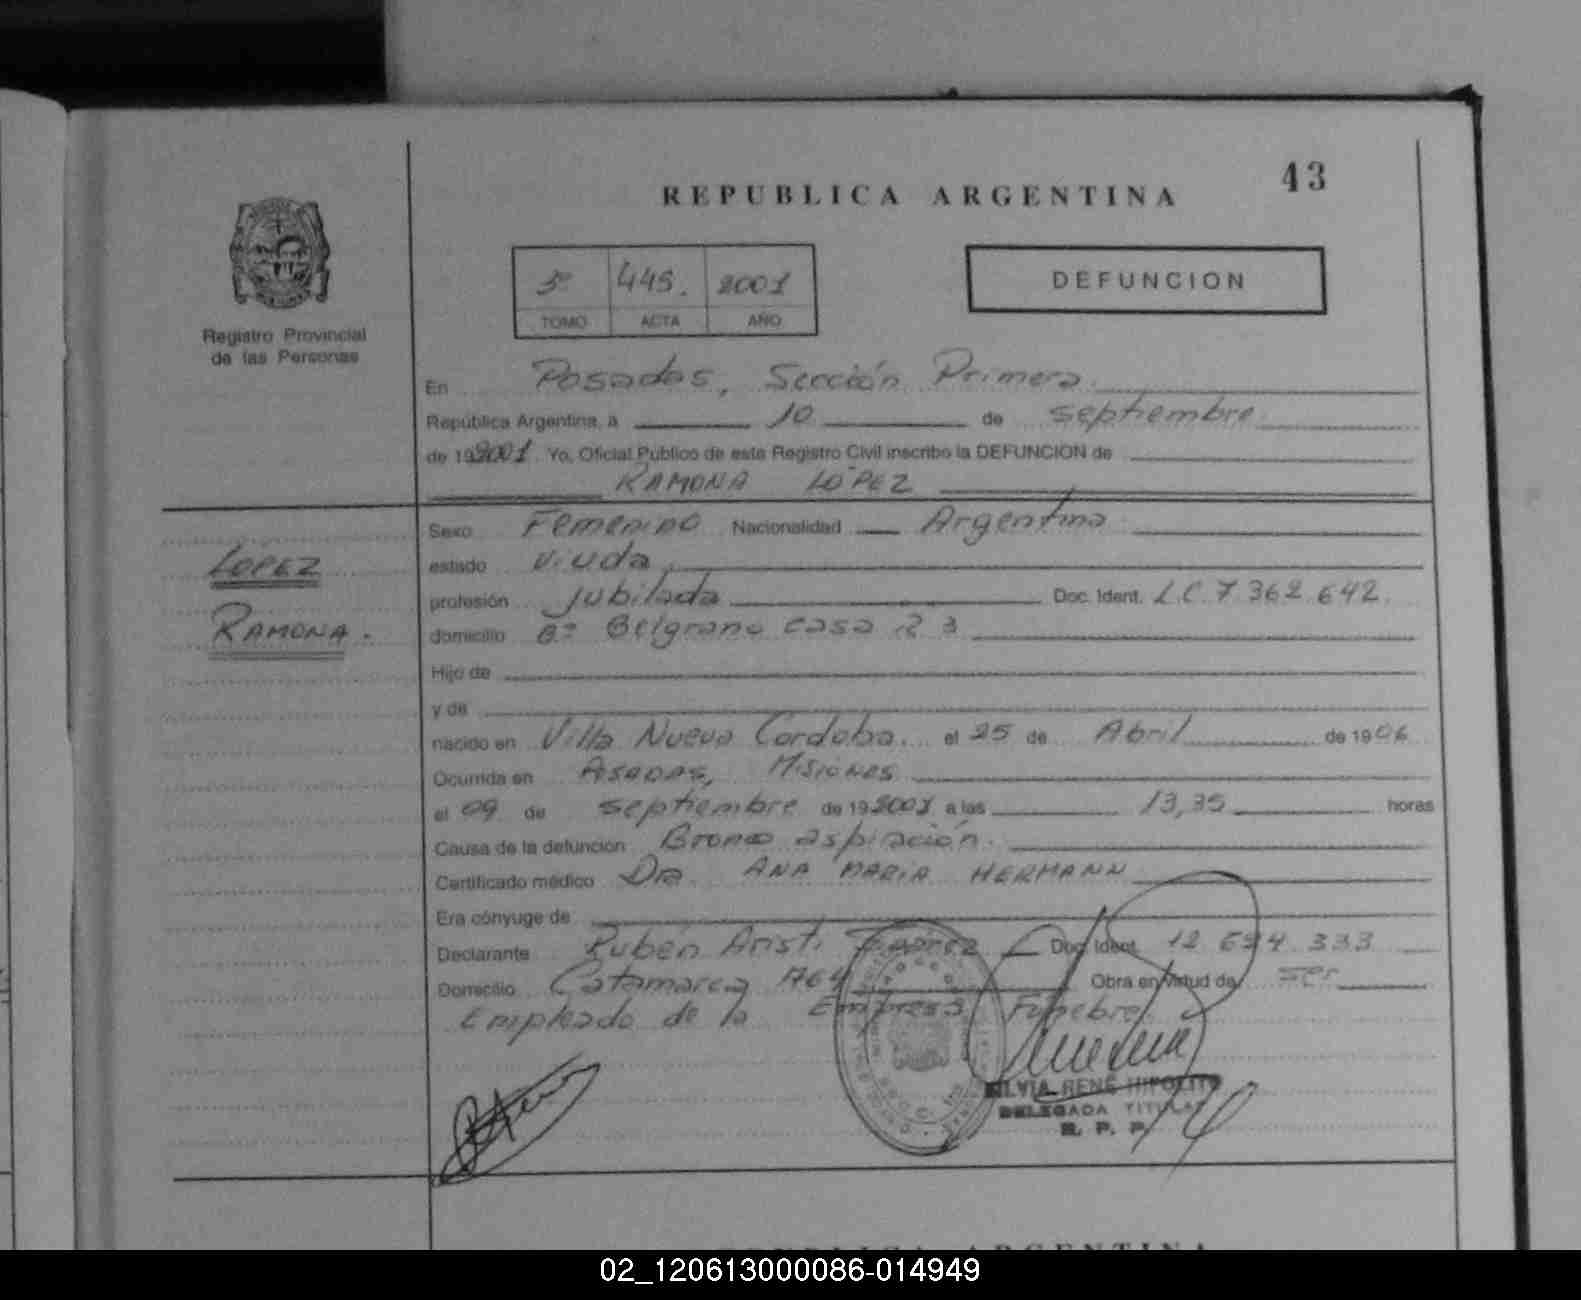 43
REPUBLICA ARGENTINA
Registro Provincial
de las Personas
3º 445. 2001
TOMO ACTA AÑO
DEFUNCION
En Posadas, Sección Primera.
República Argentina, a 10 de septiembre
de 192001. Yo, Oficial Público de este Registro Civil inscribo la DEFUNCION de
RAMONA LOPEZ
LOPEZ
RAMONA.
Sexo Femenino Nacionalidad Argentina
estado Viuda
profesión Jubilada Doc. Ident. L.C. 7.362.642.
domicilio Bº Belgrano casa 23
Hijo de
y de
nacido en Villa Nueva Cordoba. el 25 de Abril de 1906
Ocurrida en Posadas, Misiones
el 09 de septiembre de 192001 a las 13,35 horas
Causa de la defunción Bronco aspiración.
Certificado médico Dra. ANA MARIA HERMANN
Era cónyuge de
Declarante Rubén Aristi Doc. Ident. 12.634.333
Domicilio Catamarca 1764 Obra en virtud de ser
Empleado de la Empresa Fúnebre.
SILVIA RENÉ HIPOLITO
DELEGADA TITULAR
R. P. P.
REPUBLICA ARGENTINA
02_120613000086-014949